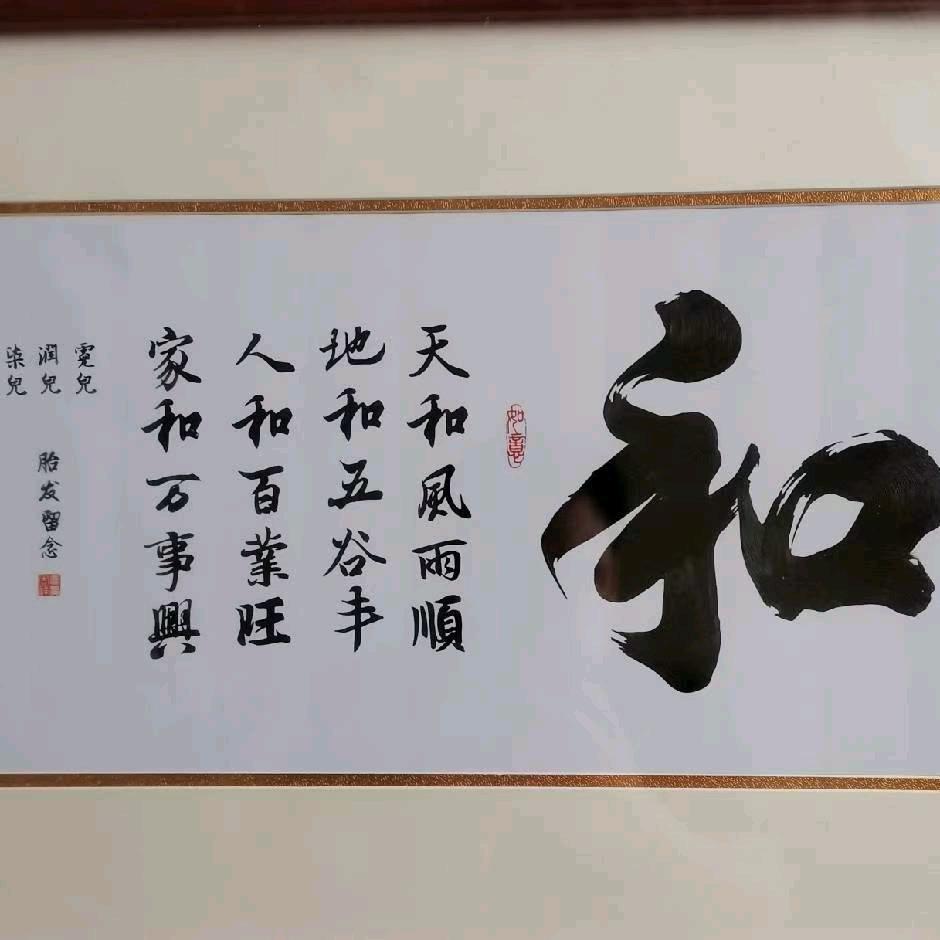 和
如意
天和風雨順
地和五谷丰
人和百業旺
家和万事興
霓兒
潤兒
柒兒
胎发留念